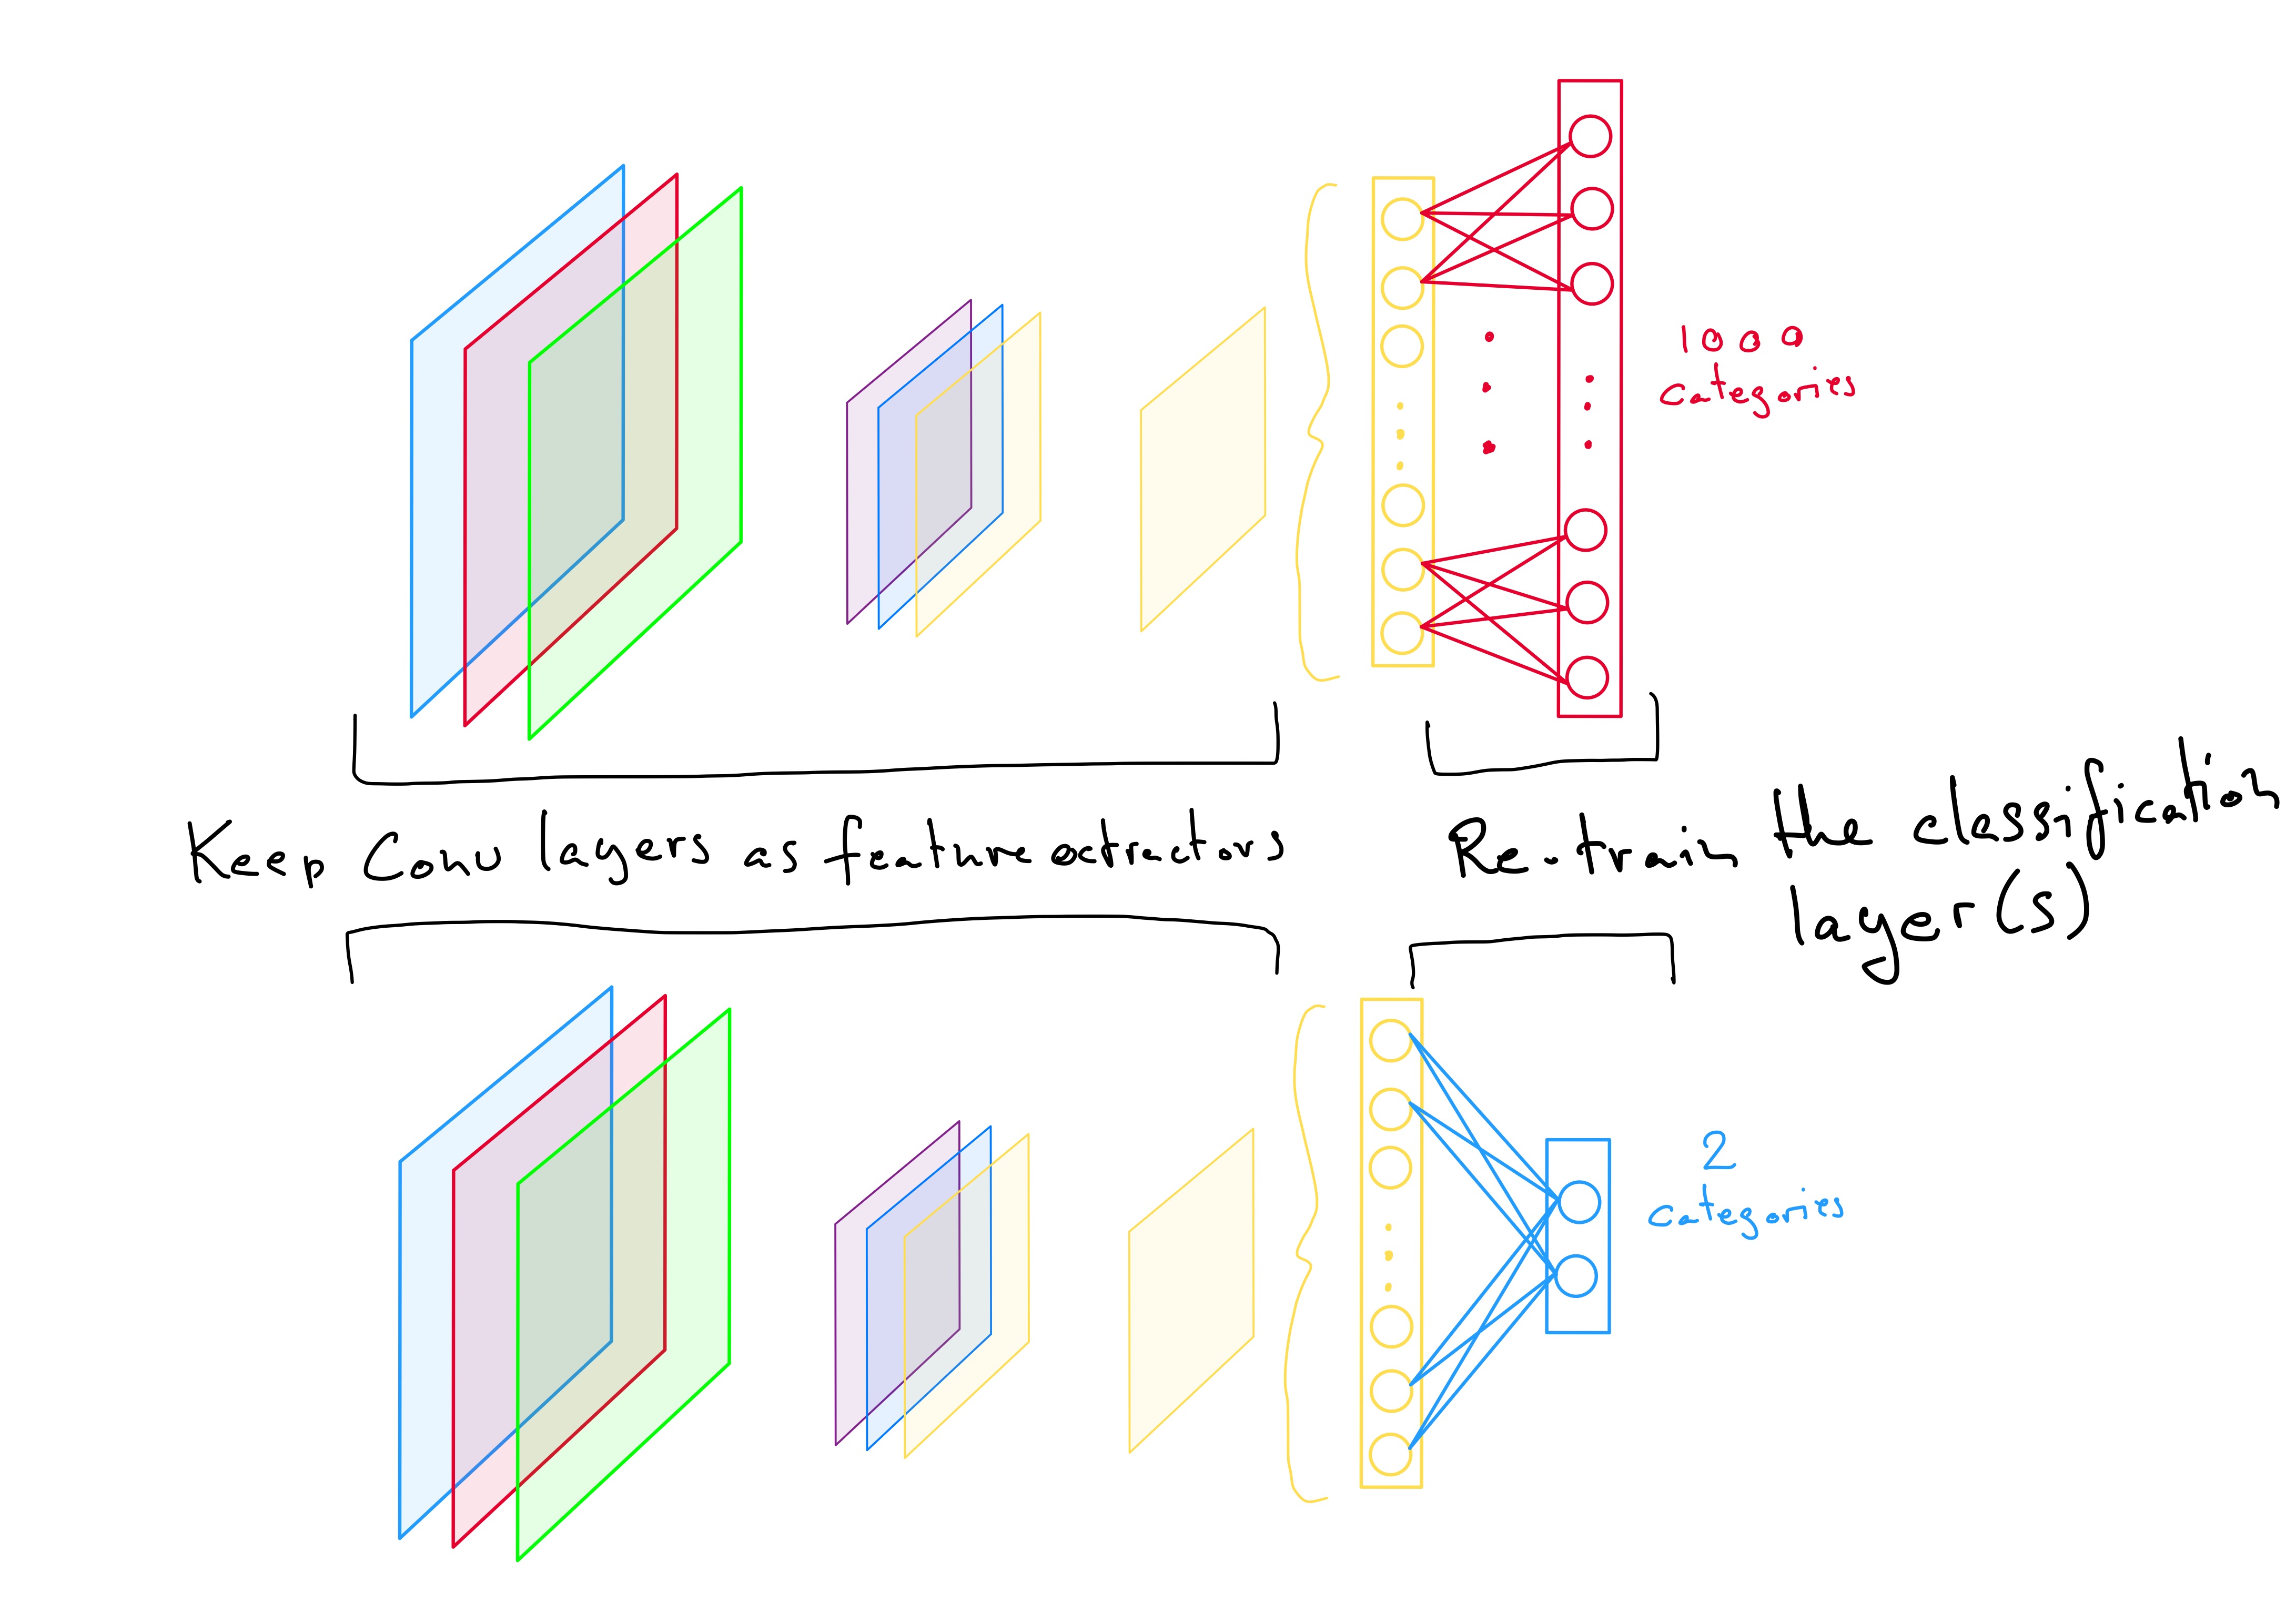 1000
categories
Keep Conv layers as feature extractors
Re-train the classification
layer(s)
2
categories